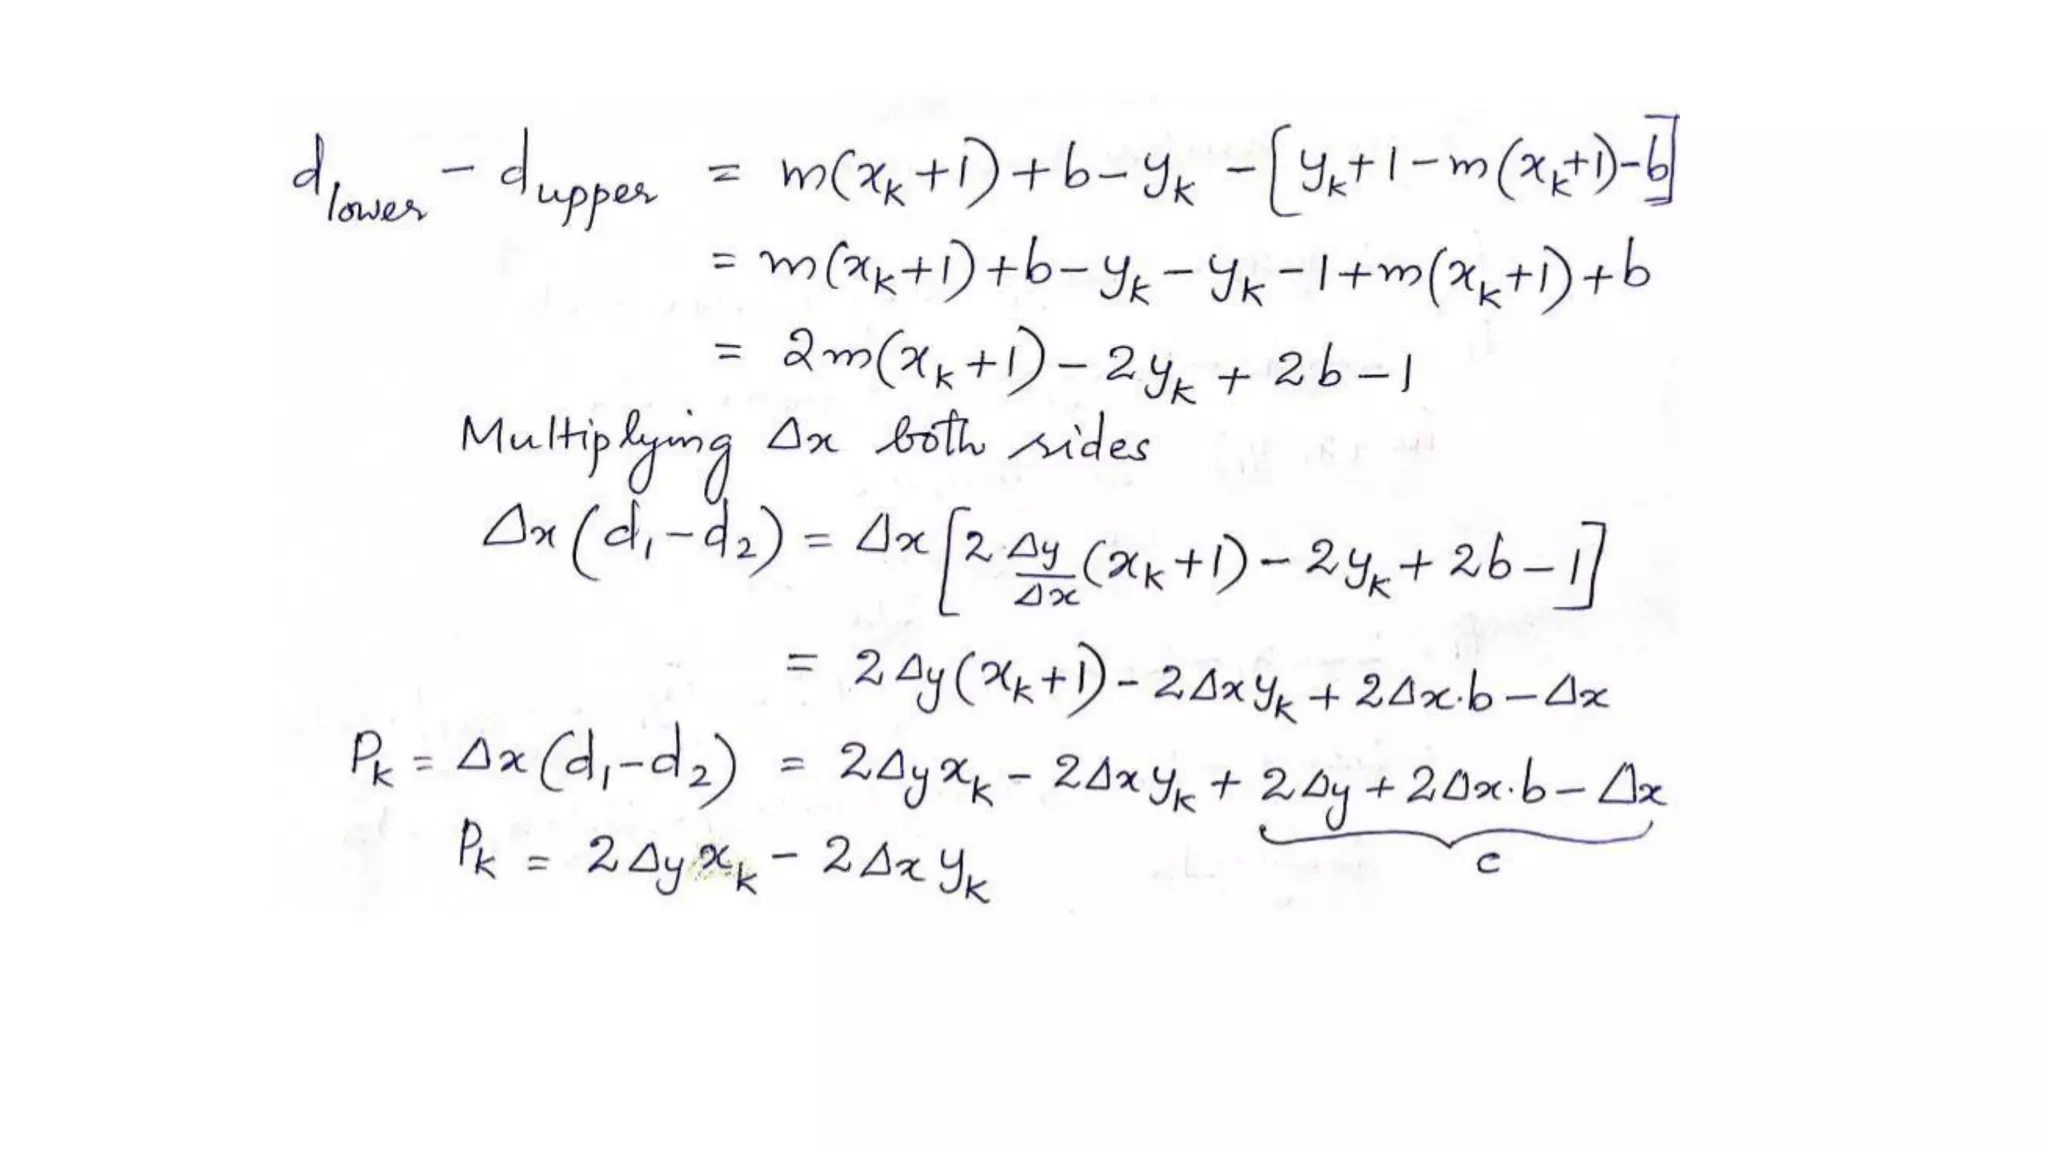 d_lower - d_upper = m(x_k+1)+b-y_k - [y_k+1-m(x_k+1)-b]
= m(x_k+1)+b-y_k-y_k-1+m(x_k+1)+b
= 2m(x_k+1)-2y_k+2b-1
Multiplying Δx both sides
Δx(d₁-d₂) = Δx[2 Δy/Δx (x_k+1)-2y_k+2b-1]
= 2Δy(x_k+1)-2Δxy_k+2Δx·b-Δx
P_k = Δx(d₁-d₂) = 2Δyx_k-2Δxy_k+2Δy+2Δx·b-Δx
c
P_k = 2Δyx_k-2Δxy_k